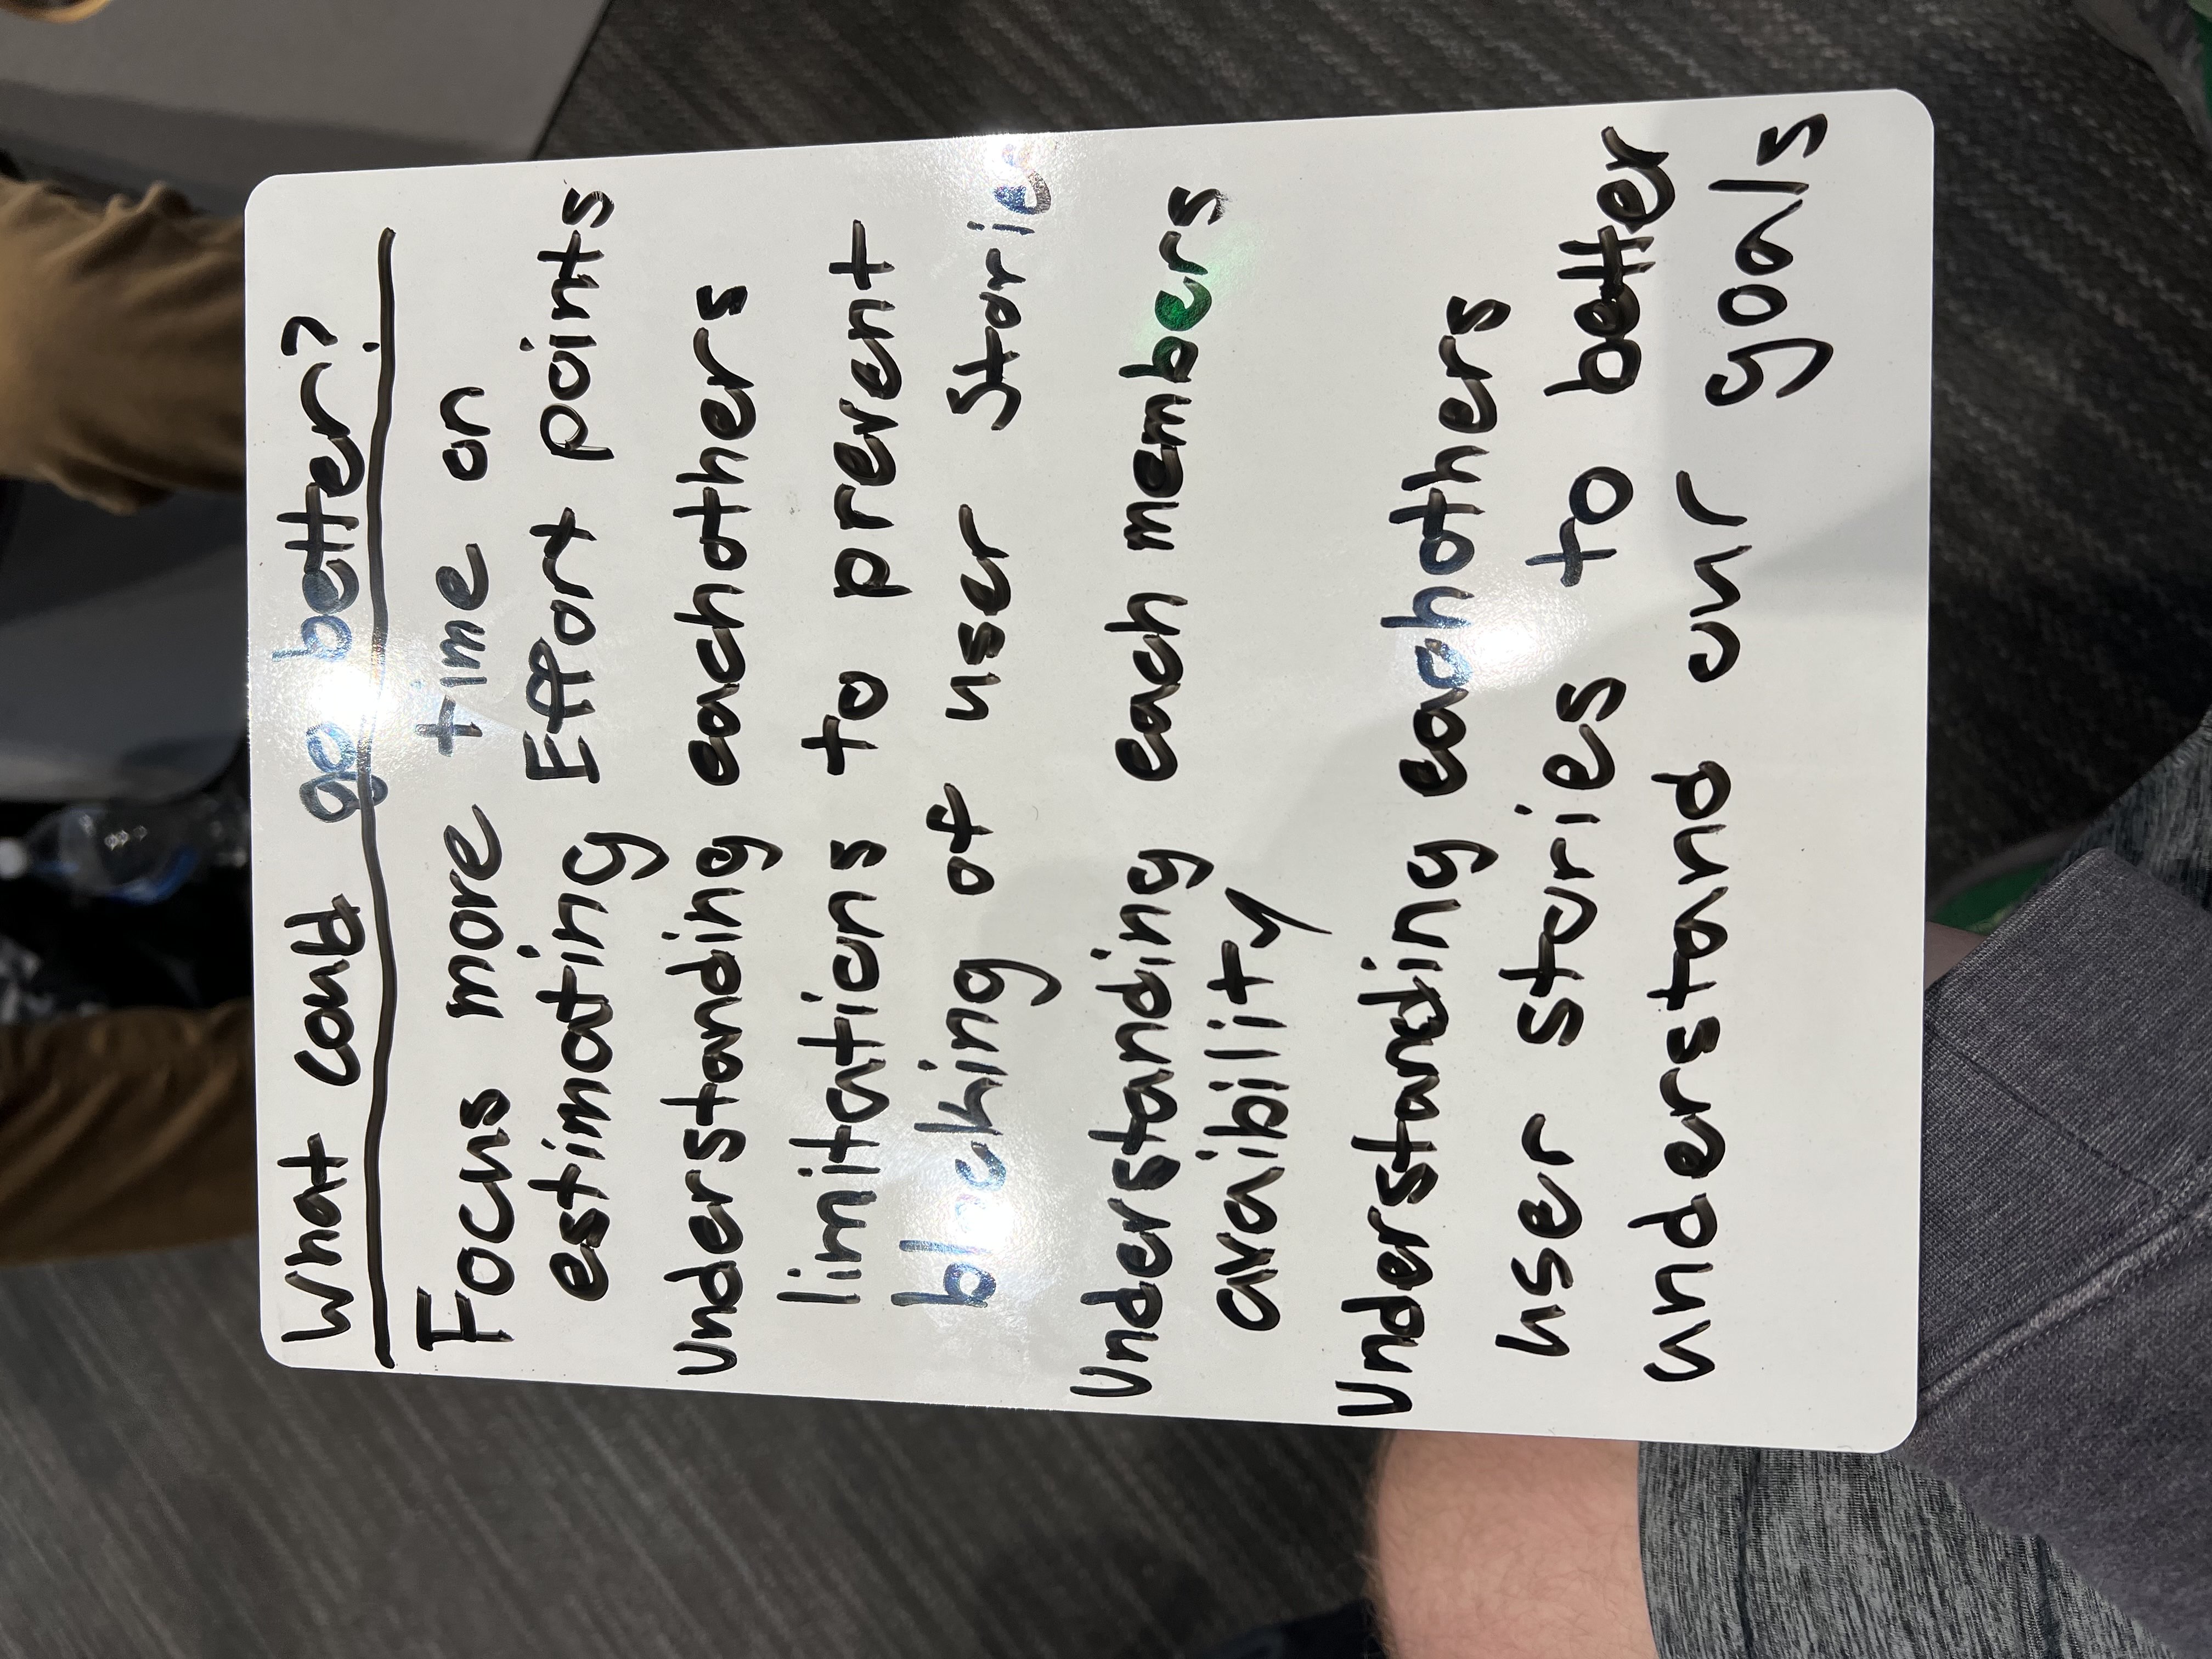 What could go better?
Focus more time on
estimating Effort points
Understanding eachothers
limitations to prevent
blocking of user Stories
Understanding each members
avaibility
Understanding eachothers
user stories to better
understand our goals